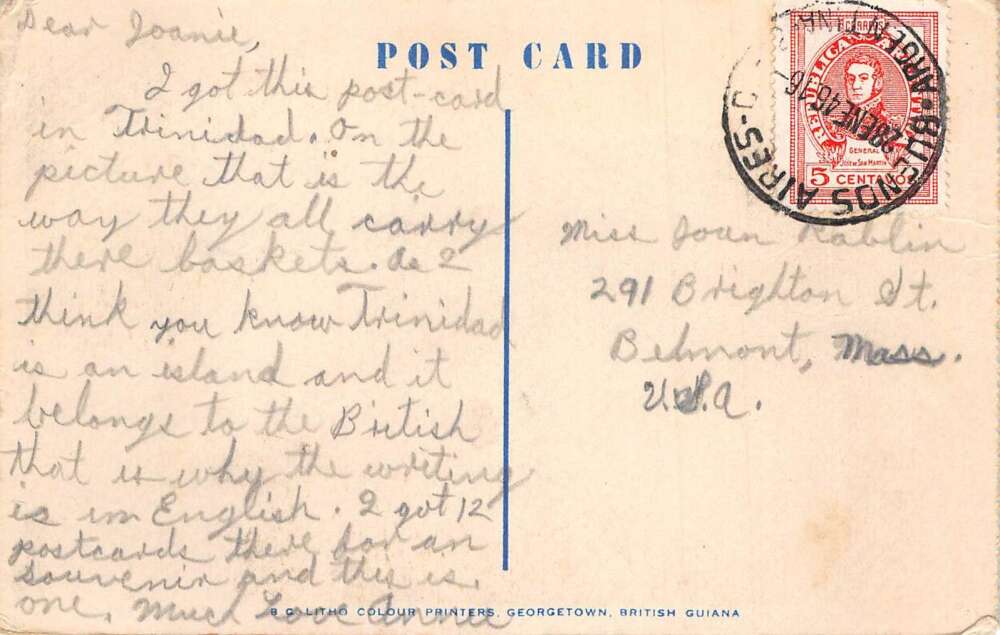 Dear Joanie,
I got this post-card
in Trinidad. On the
picture that is the
way they all carry
there baskets. As I
think you know Trinidad
is an island and it
belongs to the British
that is why the writing
is in English. I got 12
postcards there for an
souvenir and this is
one. Much Love Annie
POST CARD
CORREOS
REPUBLICA ARGENTINA
GENERAL
JOSE DE SAN MARTIN
5 CENTAVOS
BUENOS AIRES
ARGENTINA
28 ENE 40 16
Miss Joan Rablin
291 Brighton St.
Belmont, Mass.
U.S.A.
B.G. LITHO COLOUR PRINTERS, GEORGETOWN, BRITISH GUIANA